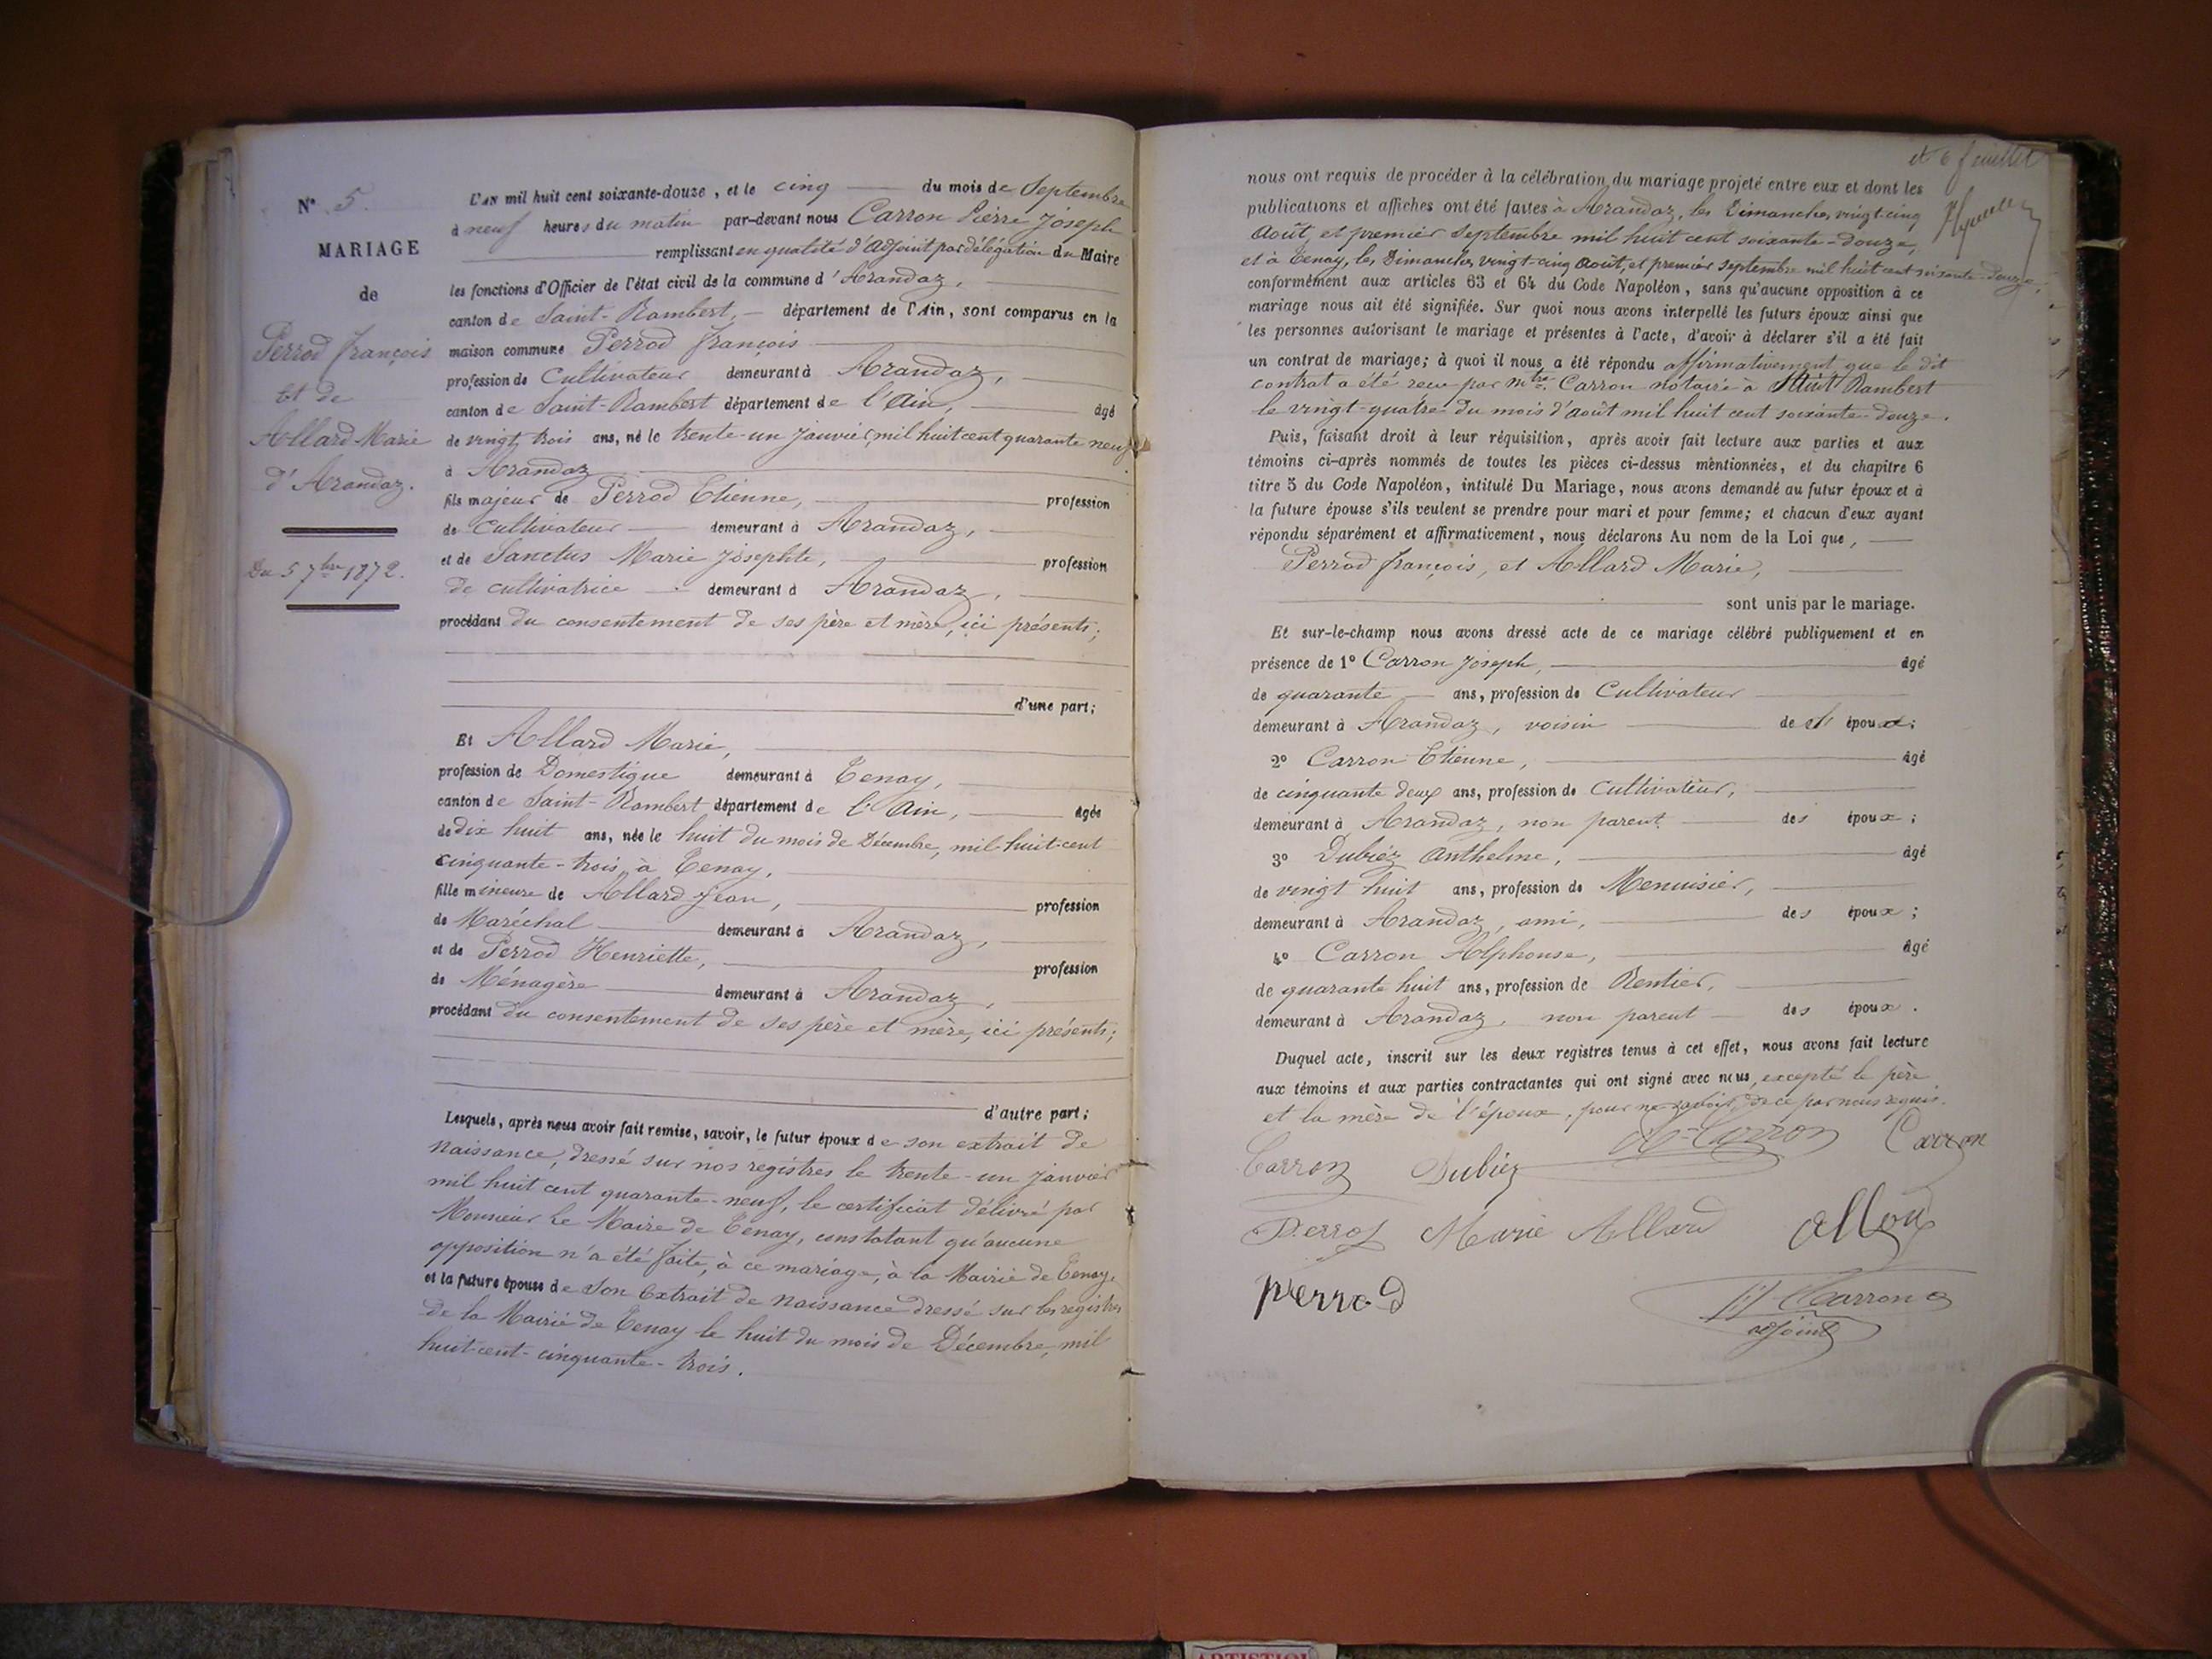 N° 5.
MARIAGE
de
Perrod François
Et de
Allard Marie
d'Arandaz.
Du 5 7bre 1872.
L'AN mil huit cent soixante-douze, et le cinq du mois de Septembre
à neuf heures du matin par-devant nous Carron Pierre Joseph
remplissant en qualité d'adjoint par délégation du Maire
les fonctions d'Officier de l'état civil de la commune d'Arandaz,
canton de Saint-Rambert, département de l'Ain, sont comparus en la
maison commune Perrod François
profession de Cultivateur demeurant à Arandaz,
canton de Saint-Rambert département de l'Ain, âgé
de vingt trois ans, né le trente-un janvier, mil huit cent quarante neuf
à Arandaz
fils majeur de Perrod Etienne, profession
de Cultivateur demeurant à Arandaz,
et de Sanctus Marie Josephte, profession
de cultivatrice demeurant à Arandaz,
procédant du consentement de ses père et mère, ici présents;
d'une part;
Et Allard Marie,
profession de Domestique demeurant à Tenay,
canton de Saint-Rambert département de l'Ain, âgée
de dix huit ans, née le huit du mois de Décembre, mil-huit-cent
cinquante-trois, à Tenay,
fille mineure de Allard Jean, profession
de Maréchal demeurant à Arandaz,
et de Perrod Henriette, profession
de Ménagère demeurant à Arandaz,
procédant du consentement de ses père et mère, ici présents;
d'autre part;
Lesquels, après nous avoir fait remise, savoir, le futur époux de son extrait de
Naissance, dressé sur nos registres le trente-un janvier
mil huit cent quarante-neuf, le certificat délivré par
Monsieur le Maire de Tenay, constatant qu'aucune
opposition n'a été faite, à ce mariage, à la Mairie de Tenay,
et la future épouse de Son Extrait de Naissance dressé sur les registres
de la Mairie de Tenay le huit du mois de Décembre, mil
huit-cent-cinquante-trois.
et 6 feuillet
nous ont requis de procéder à la célébration du mariage projeté entre eux et dont les
publications et affiches ont été faites à Arandaz, les Dimanches, vingt-cinq
Août, et premier Septembre mil huit cent soixante-douze,
et à Tenay, les Dimanches vingt-cinq Août, et premier Septembre mil huit cent soixante-douze,
conformément aux articles 63 et 64 du Code Napoléon, sans qu'aucune opposition à ce
mariage nous ait été signifiée. Sur quoi nous avons interpellé les futurs époux ainsi que
les personnes autorisant le mariage et présentes à l'acte, d'avoir à déclarer s'il a été fait
un contrat de mariage; à quoi il nous a été répondu affirmativement que le dit
contrat a été reçu par mtre Carron notaire à Rambert
le vingt-quatre du mois d'août mil huit cent soixante-douze.
Puis, faisant droit à leur réquisition, après avoir fait lecture aux parties et aux
témoins ci-après nommés de toutes les pièces ci-dessus mentionnées, et du chapitre 6
titre 5 du Code Napoléon, intitulé Du Mariage, nous avons demandé au futur époux et à
la future épouse s'ils veulent se prendre pour mari et pour femme; et chacun d'eux ayant
répondu séparément et affirmativement, nous déclarons Au nom de la Loi que,
Perrod François, et Allard Marie,
sont unis par le mariage.
Et sur-le-champ nous avons dressé acte de ce mariage célébré publiquement et en
présence de 1° Carron Joseph, âgé
de quarante ans, profession de Cultivateur
demeurant à Arandaz, voisin de époux;
2° Carron Etienne, âgé
de cinquante deux ans, profession de Cultivateur,
demeurant à Arandaz, non parent des époux;
3° Dubiez Anthelme, âgé
de vingt huit ans, profession de Menuisier,
demeurant à Arandaz, ami, des époux;
4° Carron Alphonse, âgé
de quarante huit ans, profession de Rentier,
demeurant à Arandaz, non parent des époux.
Duquel acte, inscrit sur les deux registres tenus à cet effet, nous avons fait lecture
aux témoins et aux parties contractantes qui ont signé avec nous, excepté le père
et la mère de l'époux, pour ne savoir, de ce par nous requis.
Carron Carron
Carron Dubiez
Perrod Marie Allard
perrod
Carron
adjoint